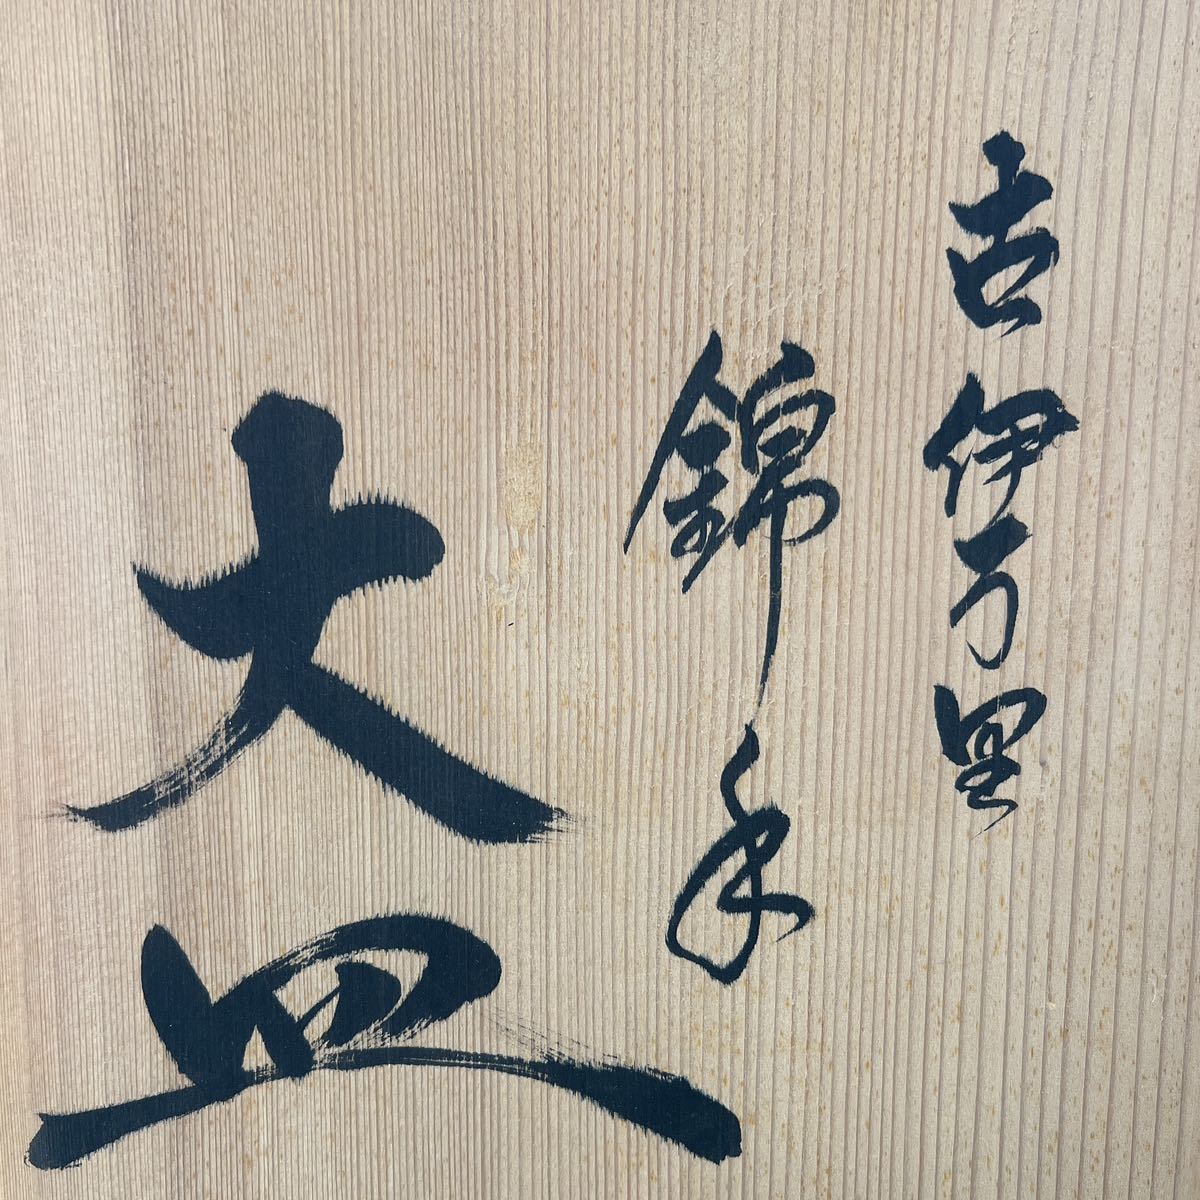 古伊万里
錦手
大皿